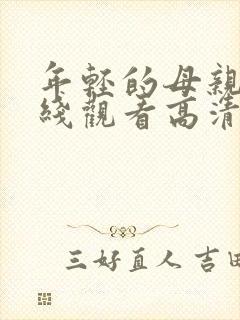 年輕的母親
綫觀看高清
三好直人 吉田